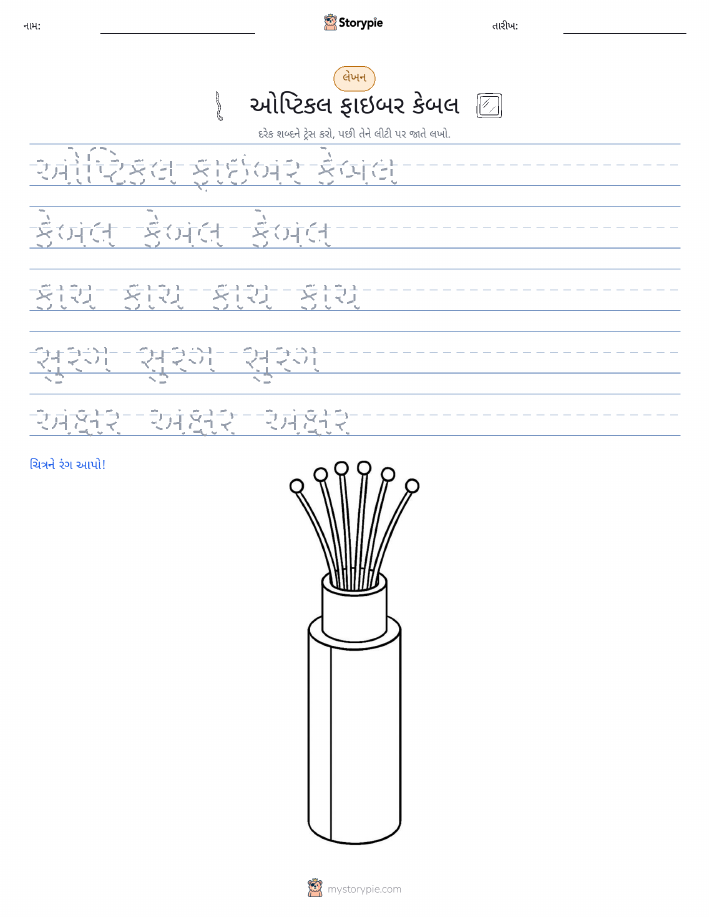 નામ:
Storypie
તારીખ:
લેખન
ઓપ્ટિકલ ફાઇબર કેબલ
દરેક શબ્દને ટ્રેસ કરો, પછી તેને લીટી પર જાતે લખો.
ઓપ્ટિકલ ફાઇબર કેબલ
કેબલ કેબલ કેબલ
કાચ કાચ કાચ કાચ
સુરંગ સુરંગ સુરંગ
અક્ષર અક્ષર અક્ષર
ચિત્રને રંગ આપો!
mystorypie.com